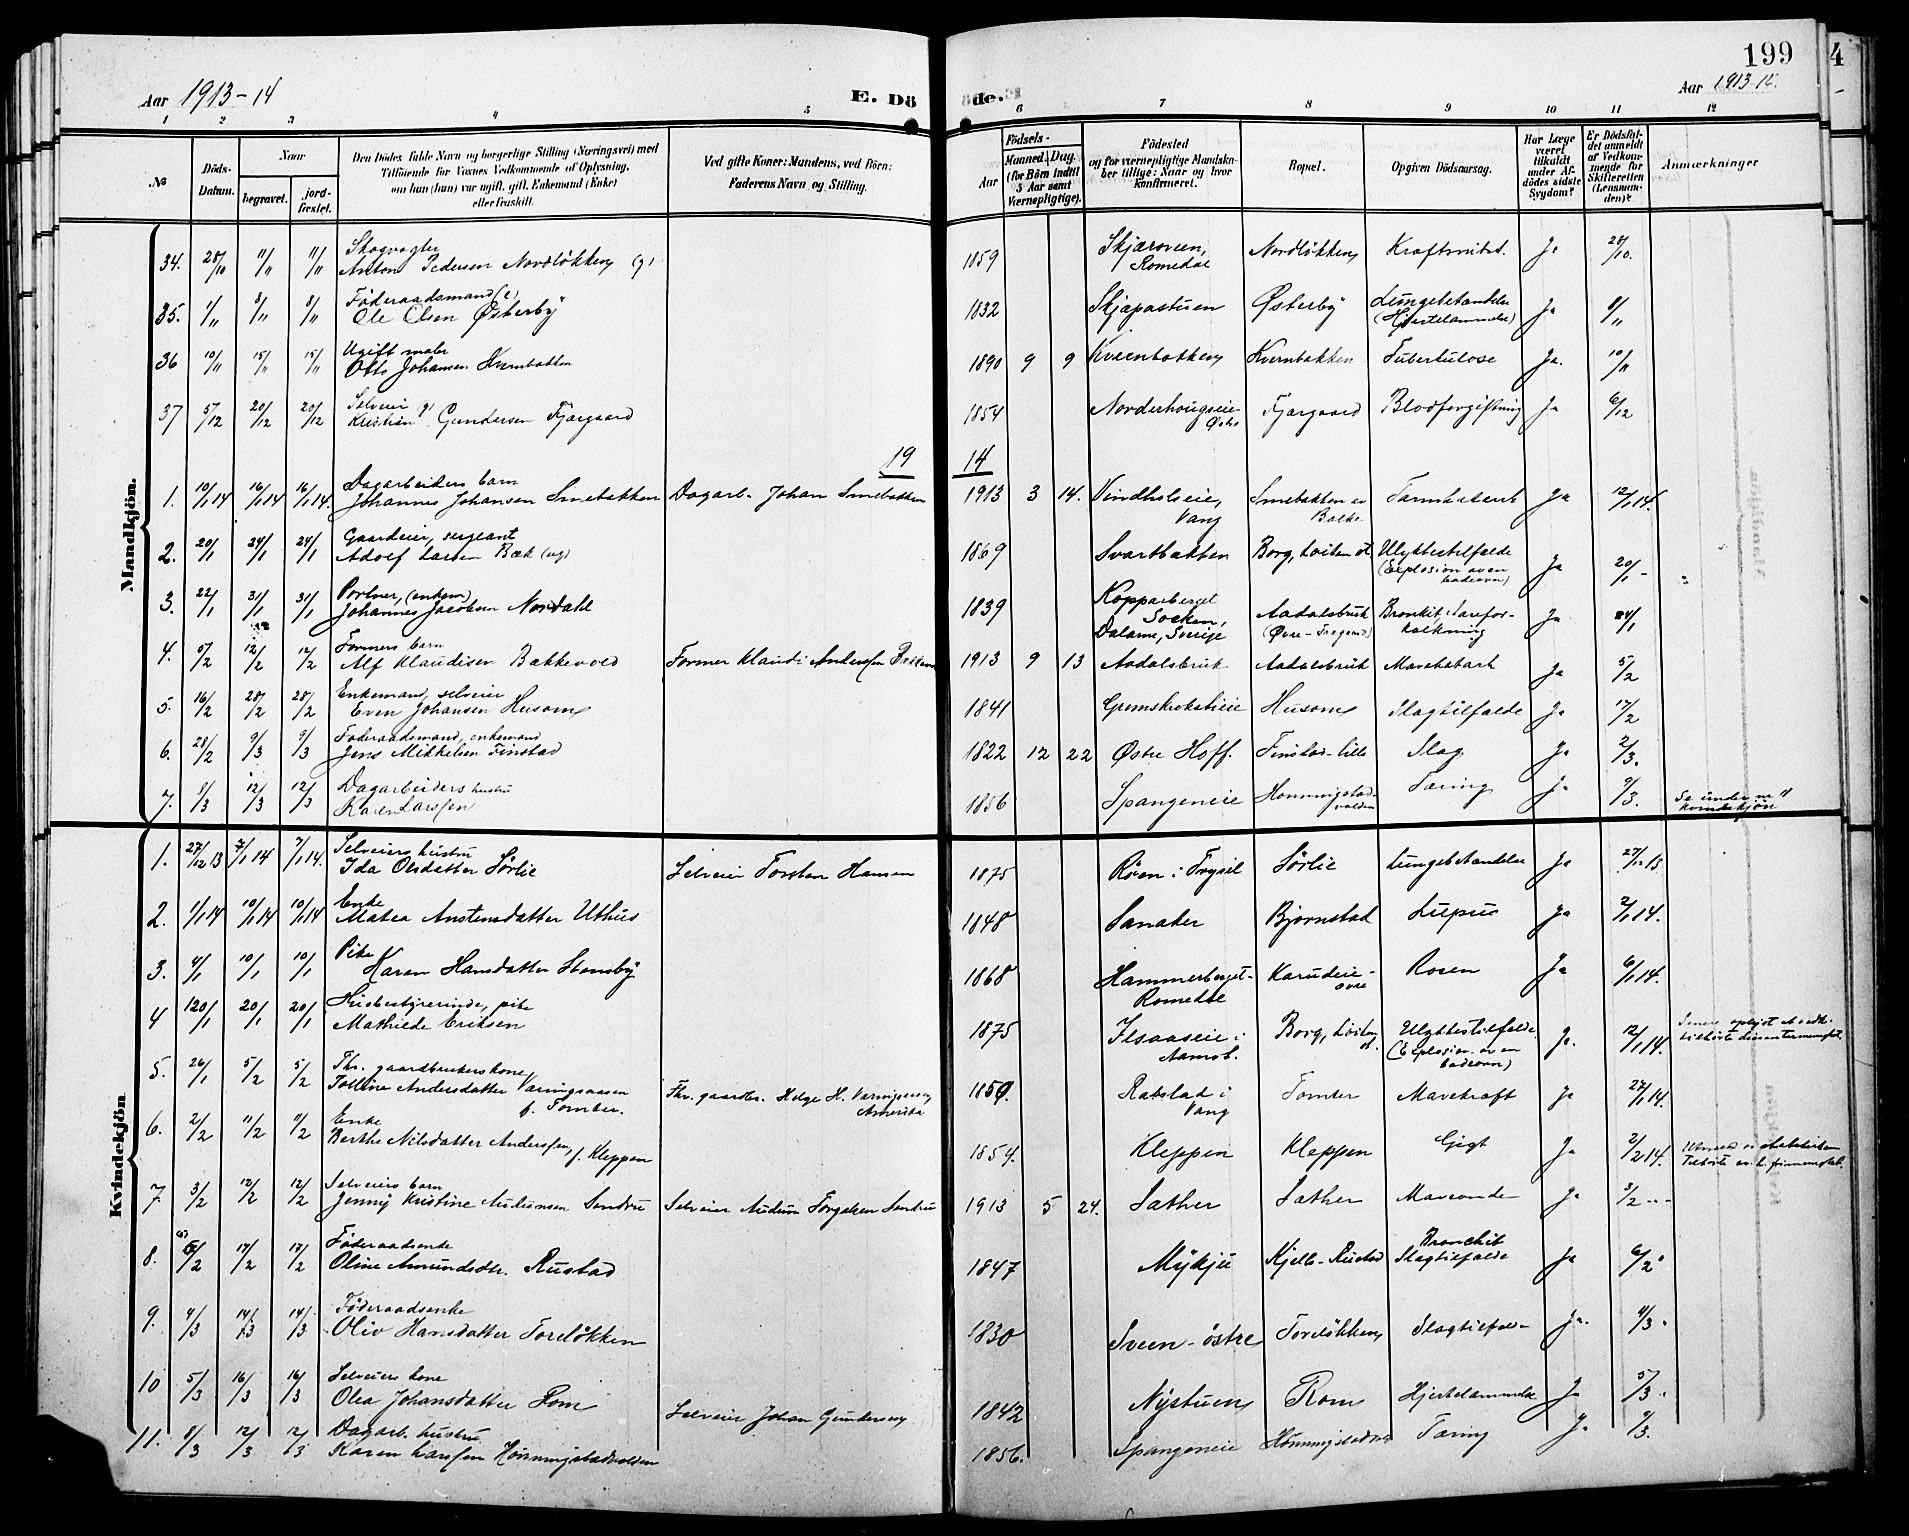 Aar 1913-14
E. Dö
de.
199
Aar 1913-14.
4
1 2 3 4 5 6 7 8 9 10 11 12
No
Döds-Datum.
Naar
begravet.
jord-fæstet.
Den Dödes fulde Navn og borgerlige Stilling (Næringsvei) med
Tilföiende for Voxnes Vedkommende af Oplysning,
om han (hun) var ugift, gift, Enkemand (Enke)
eller fraskilt.
Ved gifte Koner: Mandens, ved Börn:
Faderens Navn og Stilling.
Födsels-
Aar
Maaned. Dag.
(for Börn indtil
5 Aar samt
Værnepligtige).
Födested
og for værnepligtige Mandskaber tillige: Naar og hvor konfirmeret.
Bopæl.
Opgiven Dödsaarsag.
Har Læge været tilkaldt under Afdödes sidste Sygdom?
Er Dödsfaldet anmeldt af Vedkommende for Skifteretten (Lensmanden)?
Anmærkninger
Mandkjön.
34. 28/10 11/11 11/11 Skogvogter
Anton Pedersen Nordløkken (g) 1859 Skjærsveen, Romedal Nordløkken Ja 28/10.
35. 1/11 8/11 8/11 Føderaadsmand (e)
Ole Olsen Østerby 1832 Skjæpastuen Østerby Lungebetændelse (Hjertelammelse) Ja 8/11
36 10/11 15/11 15/11 Ugift maler
Otto Johansen Kvernbakken 1890 9 9 Kveenbakken Kvernbakken Tuberkulose Ja. 10/11
37 5/12 20/12 20/12 Selveier g
Kristian Gundersen Fjærgaard 1854 Norderhougseie Østre Fjærgaard Blodforgiftning Ja 6/12
19 14
1. 10/1 14 16/1 14 16/1 14. Dagarbeiders barn
Johannes Johansen Smebakken Dagarb. Johan Smebakken 1913 3 14. Vindholseie, Vang Smebakken Tarmkatarrh Ja 12/1 14.
2. 20/1 24/1 24/1 Gaardeier, sergeant
Adolf Larsen Bæk (ug) 1869 Svartbakken Borg, Løiten Ulykkestilfælde (Explosion av en badeovn) Ja 20/1 -
3. 22/1 31/1 31/1 Portner, (enkem)
Johannes Jacobsen Nordahl 1839 Kopparberget Socken, Dalarne, Sverige Aadalsbruk Bronkit, Aareforkalkning Ja 24/1
4. 5/2 12/2 12/2 Formers barn
Alf Klaudisen Bækkevold Former Klaudi Anderssen 1913 9 13 Aadalsbruk Aadalsbruk Mavekatarh Ja 5/2
5. 16/2 28/2 28/2 Enkemand, selveier
Even Johansen Husom 1841 Husom Slagtilfælde Ja 17/2
6. 28/2 9/3 9/3 Føderaadsmand, enkemand
Jens Mikkelsen Finstad 1822 12 22 Østre Hoff. Finstad-lille Slag Ja 2/3.
7. 8/3 12/3 12/3 Dagarbeiders hustru
Karen Larssen 1856 Spangeneie Honningstadvolden Tæring Ja 9/3. Se under nr 11 kvindekjøn
Kvindekjön
1. 27/12 13 7/1 14 7/1 14. Selveiers hustru
Ida Olsdatter Sørlie Selveier Torsten Hansen 1875 Røen i Trysil Sørlie Lungebetændelse Ja 27/12 13
2. 1/1 14 10/1 14 10/1 14 Enke
Matea Anstensdatter Uthus 1848 Sanaker Bjørnstad Lupus Ja 2/1 14.
3. 4/1 10/1 10/1 Pike
Karen Hansdatter Stensby 1868 Hammerberget Romedal Karudeie øvre Rosen Ja 6/1 14.
4 20/1 20/1 20/1 Husbestyrerinde, pike
Mathilde Eriksen 1875 Ilsaaseie i Aamot. Borg, Løiten Ulykkestilfælde (Explosion av en badeovn) Ja. 12/1 14.
5. 26/1 5/2 5/2 Fhv. gaardbrukerskone
Andersdatter Værningsaasen f. Tomter. Fhv. gaardbr. Helge H. Amerika 1859. Rabstad i Vang Tomter Mavekræft Ja 27/1 14.
6. 2/2 11/2 11/2 Enke
Berthe Nilsdatter Anderssen, f. Kleppen 1854. Kleppen Kleppen Gigt Ja 2/2 14.
7. 3/2 12/2 12/2 Selveiers barn
Jenny Kristine Audunsen Søndru Selveier Audun Torgalsen Søndru 1913 5 24. Sæther Sæther Maveonde Ja 3/2
8. 5/2 17/2 17/2 Føderaadsenke
Oline Amundsdtr. Rustad 1847 Mykju Kjelle-Rustad Bronchit Slagtilfælde Ja 6/2
9. 4/3 14/3 14/3 Føderaadsenke
Oliv Hansdatter Torsløkken 1830 Sveen-østre Torsløkken Slagtilfælde Ja. 4/3.
10 5/3 16/3 16/3 Selveiers kone
Olea Johansdatter Rom Selveier Johan Gundersen 1842 Nystuen Rom Hjertelammelse Ja 5/3.
11. 8/3 12/3 12/3 Dagarb. hustru
Karen Larssen Honningstadvolden 1856. Spangeneie Tæring Ja 9/3.